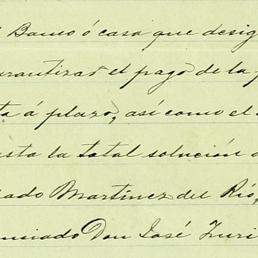 Banco ó casa que desig
arantizar el pago de la
ta á plazo, así como el
asta la total solución
ado Martinez del Rio,
nsiado Don José Zuri